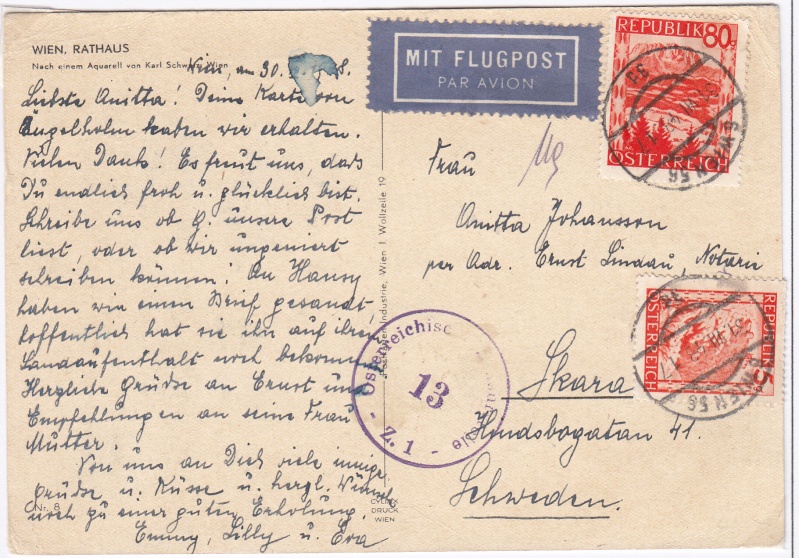 WIEN, RATHAUS
Nach einem Aquarell von Karl Schwarz, Wien
Wien, am 30. 8.
Liebste Anitta! Deine Karte von
Engelholm haben wir erhalten.
Vielen Dank! Es freut uns, dass
Du endlich froh u. glücklich bist.
Schreibe uns ob G. unsere Post
liest, oder ob wir ungeniert
schreiben können! An Hansy
haben wir einen Brief gesandt,
hoffentlich hat sie ihn auf ihrem
Landaufenthalt noch bekommen.
Herzliche Grüße an Ernst und
Empfehlungen an seine Frau
Mutter.
Von uns an Dich viele innige
Grüße u. Küsse u. herzl. Wünsche
noch zu einer guten Erholung.
Emmy, Lilly u. Eva
Nr. 8
Industrie, Wien I Wollzeile 19
DRUCK
WIEN
MIT FLUGPOST
PAR AVION
REPUBLIK 80g
ÖSTERREICH
WIEN 56
Frau
Anitta Johansson
per Adr. Ernst Lindau, Notarie
REPUBLIK 5
ÖSTERREICH
WIEN 56
Österreichische
13
Z. 1
Skara
Hindsbogatan 41.
Schweden.